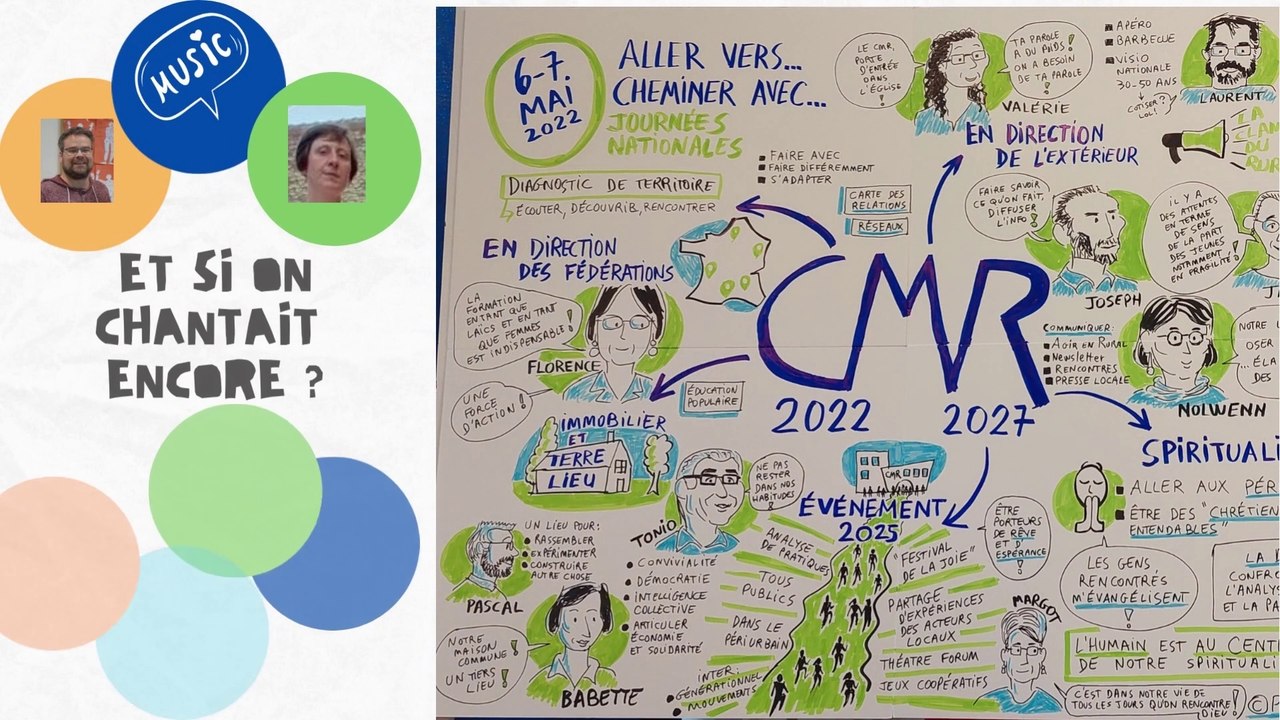 MUSIC
ET SI ON
CHANTAIT
ENCORE ?
6-7.
MAI
2022
ALLER VERS...
CHEMINER AVEC...
JOURNÉES
NATIONALES
FAIRE AVEC
FAIRE DIFFÉREMMENT
S'ADAPTER
DIAGNOSTIC DE TERRITOIRE
ÉCOUTER, DÉCOUVRIR, RENCONTRER
CARTE DES
RELATIONS
RÉSEAUX
EN DIRECTION
DES FÉDÉRATIONS
LA
FORMATION
EN TANT QUE
LAÏCS ET EN TANT
QUE FEMMES
EST INDISPENSABLE!
FLORENCE
UNE
FORCE
D'ACTION!
ÉDUCATION
POPULAIRE
IMMOBILIER
ET
TERRE
LIEU
LE CMR,
PORTE
D'ENTRÉE
DANS
L'ÉGLISE!
TA PAROLE
A DU POIDS!
ON A BESOIN
DE TA PAROLE!
VALÉRIE
APÉRO
BARBECUE
VISIO
NATIONALE
30-50 ANS
COTISER?
LOL!
LAURENT
EN DIRECTION
DE L'EXTÉRIEUR
FAIRE SAVOIR
CE QU'ON FAIT,
DIFFUSER
L'INFO!
JOSEPH
IL Y A
DES ATTENTES
EN TERME
DE SENS
DE LA PART
DES JEUNES
NOTAMMENT
EN FRAGILITÉ!
LA
LAN
DU
RUR
CMR
2022
2027
COMMUNIQUER:
AGIR EN RURAL
NEWSLETTER
RENCONTRES
PRESSE LOCALE
NOLWENN
NOTRE
OSER
...ÉLA
DES
SPIRITUALI
ALLER AUX PÉR
ÊTRE DES "CHRÉTIEN
ENTENDABLES"
LES GENS
RENCONTRÉS
M'ÉVANGÉLISENT
!
CONFRO
L'ANALYS
ET LA PA
L'HUMAIN EST AU CENT
DE NOTRE SPIRITUALI
C'EST DANS NOTRE VIE DE
TOUS LES JOURS QU'ON RENCONTRE
DIEU!
MARGOT
ÊTRE
PORTEURS
DE RÊVE
ET D'
ESPÉRANCE!
CMR
ÉVÉNEMENT
2025
"FESTIVAL
DE LA JOIE"
PARTAGE
D'EXPÉRIENCES
DES ACTEURS
LOCAUX
THÉATRE FORUM
JEUX COOPÉRATIFS
ANALYSE
DE PRATIQUES
TOUS
PUBLICS
DANS LE
PÉRIURBAIN
INTER:
GÉNÉRATIONNEL
MOUVEMENTS
NE PAS
RESTER
DANS NOS
HABITUDES!
TONIO
CONVIVIALITÉ
DÉMOCRATIE
INTELLIGENCE
COLLECTIVE
ARTICULER
ÉCONOMIE
ET SOLIDARITÉ
UN LIEU POUR:
RASSEMBLER
EXPÉRIMENTER
CONSTRUIRE
AUTRE CHOSE
PASCAL
NOTRE
MAISON
COMMUNE!
UN TIERS
LIEU!
BABETTE